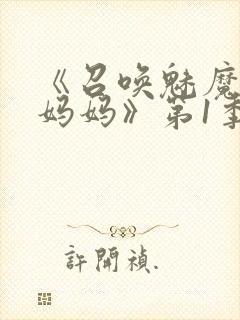 《召唤魅魔
妈妈》第1季
許開禎.